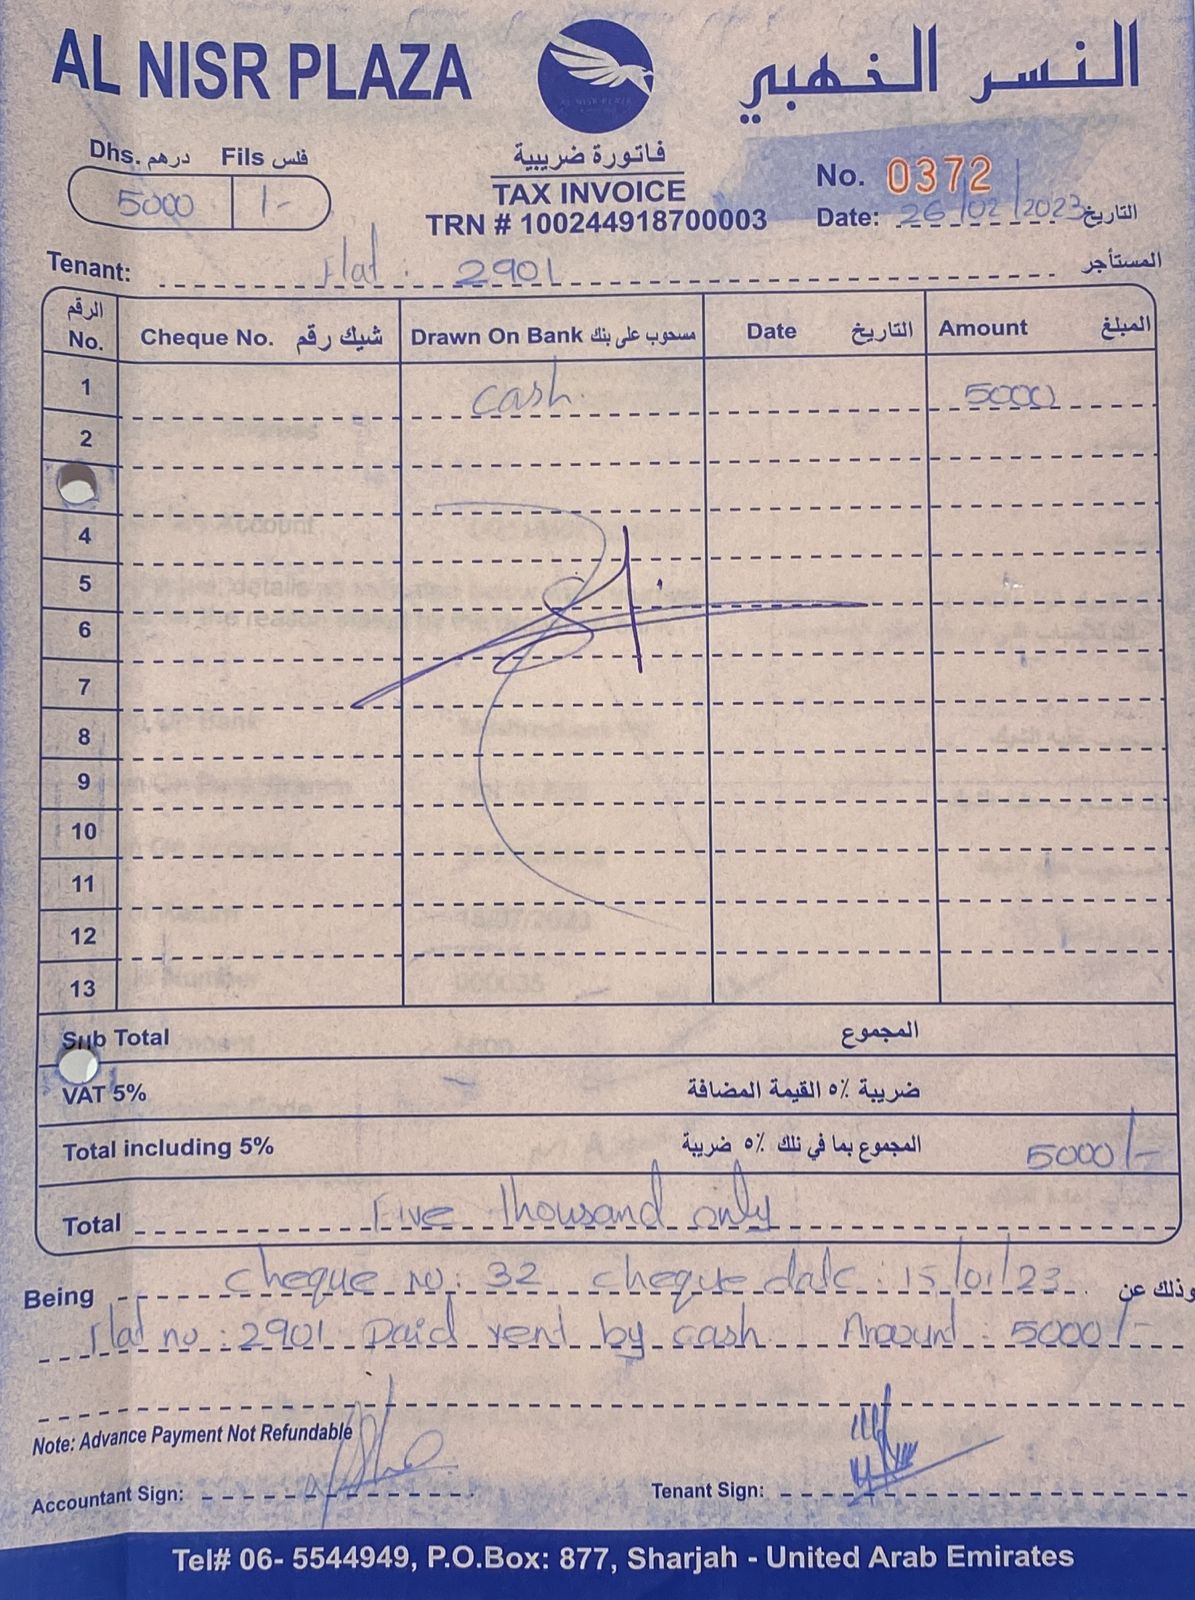 AL NISR PLAZA
النسر الذهبي
Dhs. درهم Fils فلس
5000 /-
فاتورة ضريبية
TAX INVOICE
TRN # 100244918700003
No. 0372
Date: 26/02/2023 التاريخ
Tenant: Flat : 2901 المستأجر
الرقم No. Cheque No. شيك رقم Drawn On Bank مسحوب على بنك Date التاريخ Amount المبلغ
1 cash. 5000
2
4
5
6
7
8
9
10
11
12
13
Sub Total المجموع
VAT 5% ضريبة ٥٪ القيمة المضافة
Total including 5% المجموع بما في ذلك ٥٪ ضريبة 5000/-
Total Five thousand only
Being cheque no: 32 cheque date: 15/01/23. وذلك عن
Flat no: 2901 Paid rent by cash. Amount: 5000/-
Note: Advance Payment Not Refundable
Accountant Sign: Tenant Sign:
Tel# 06- 5544949, P.O.Box: 877, Sharjah - United Arab Emirates